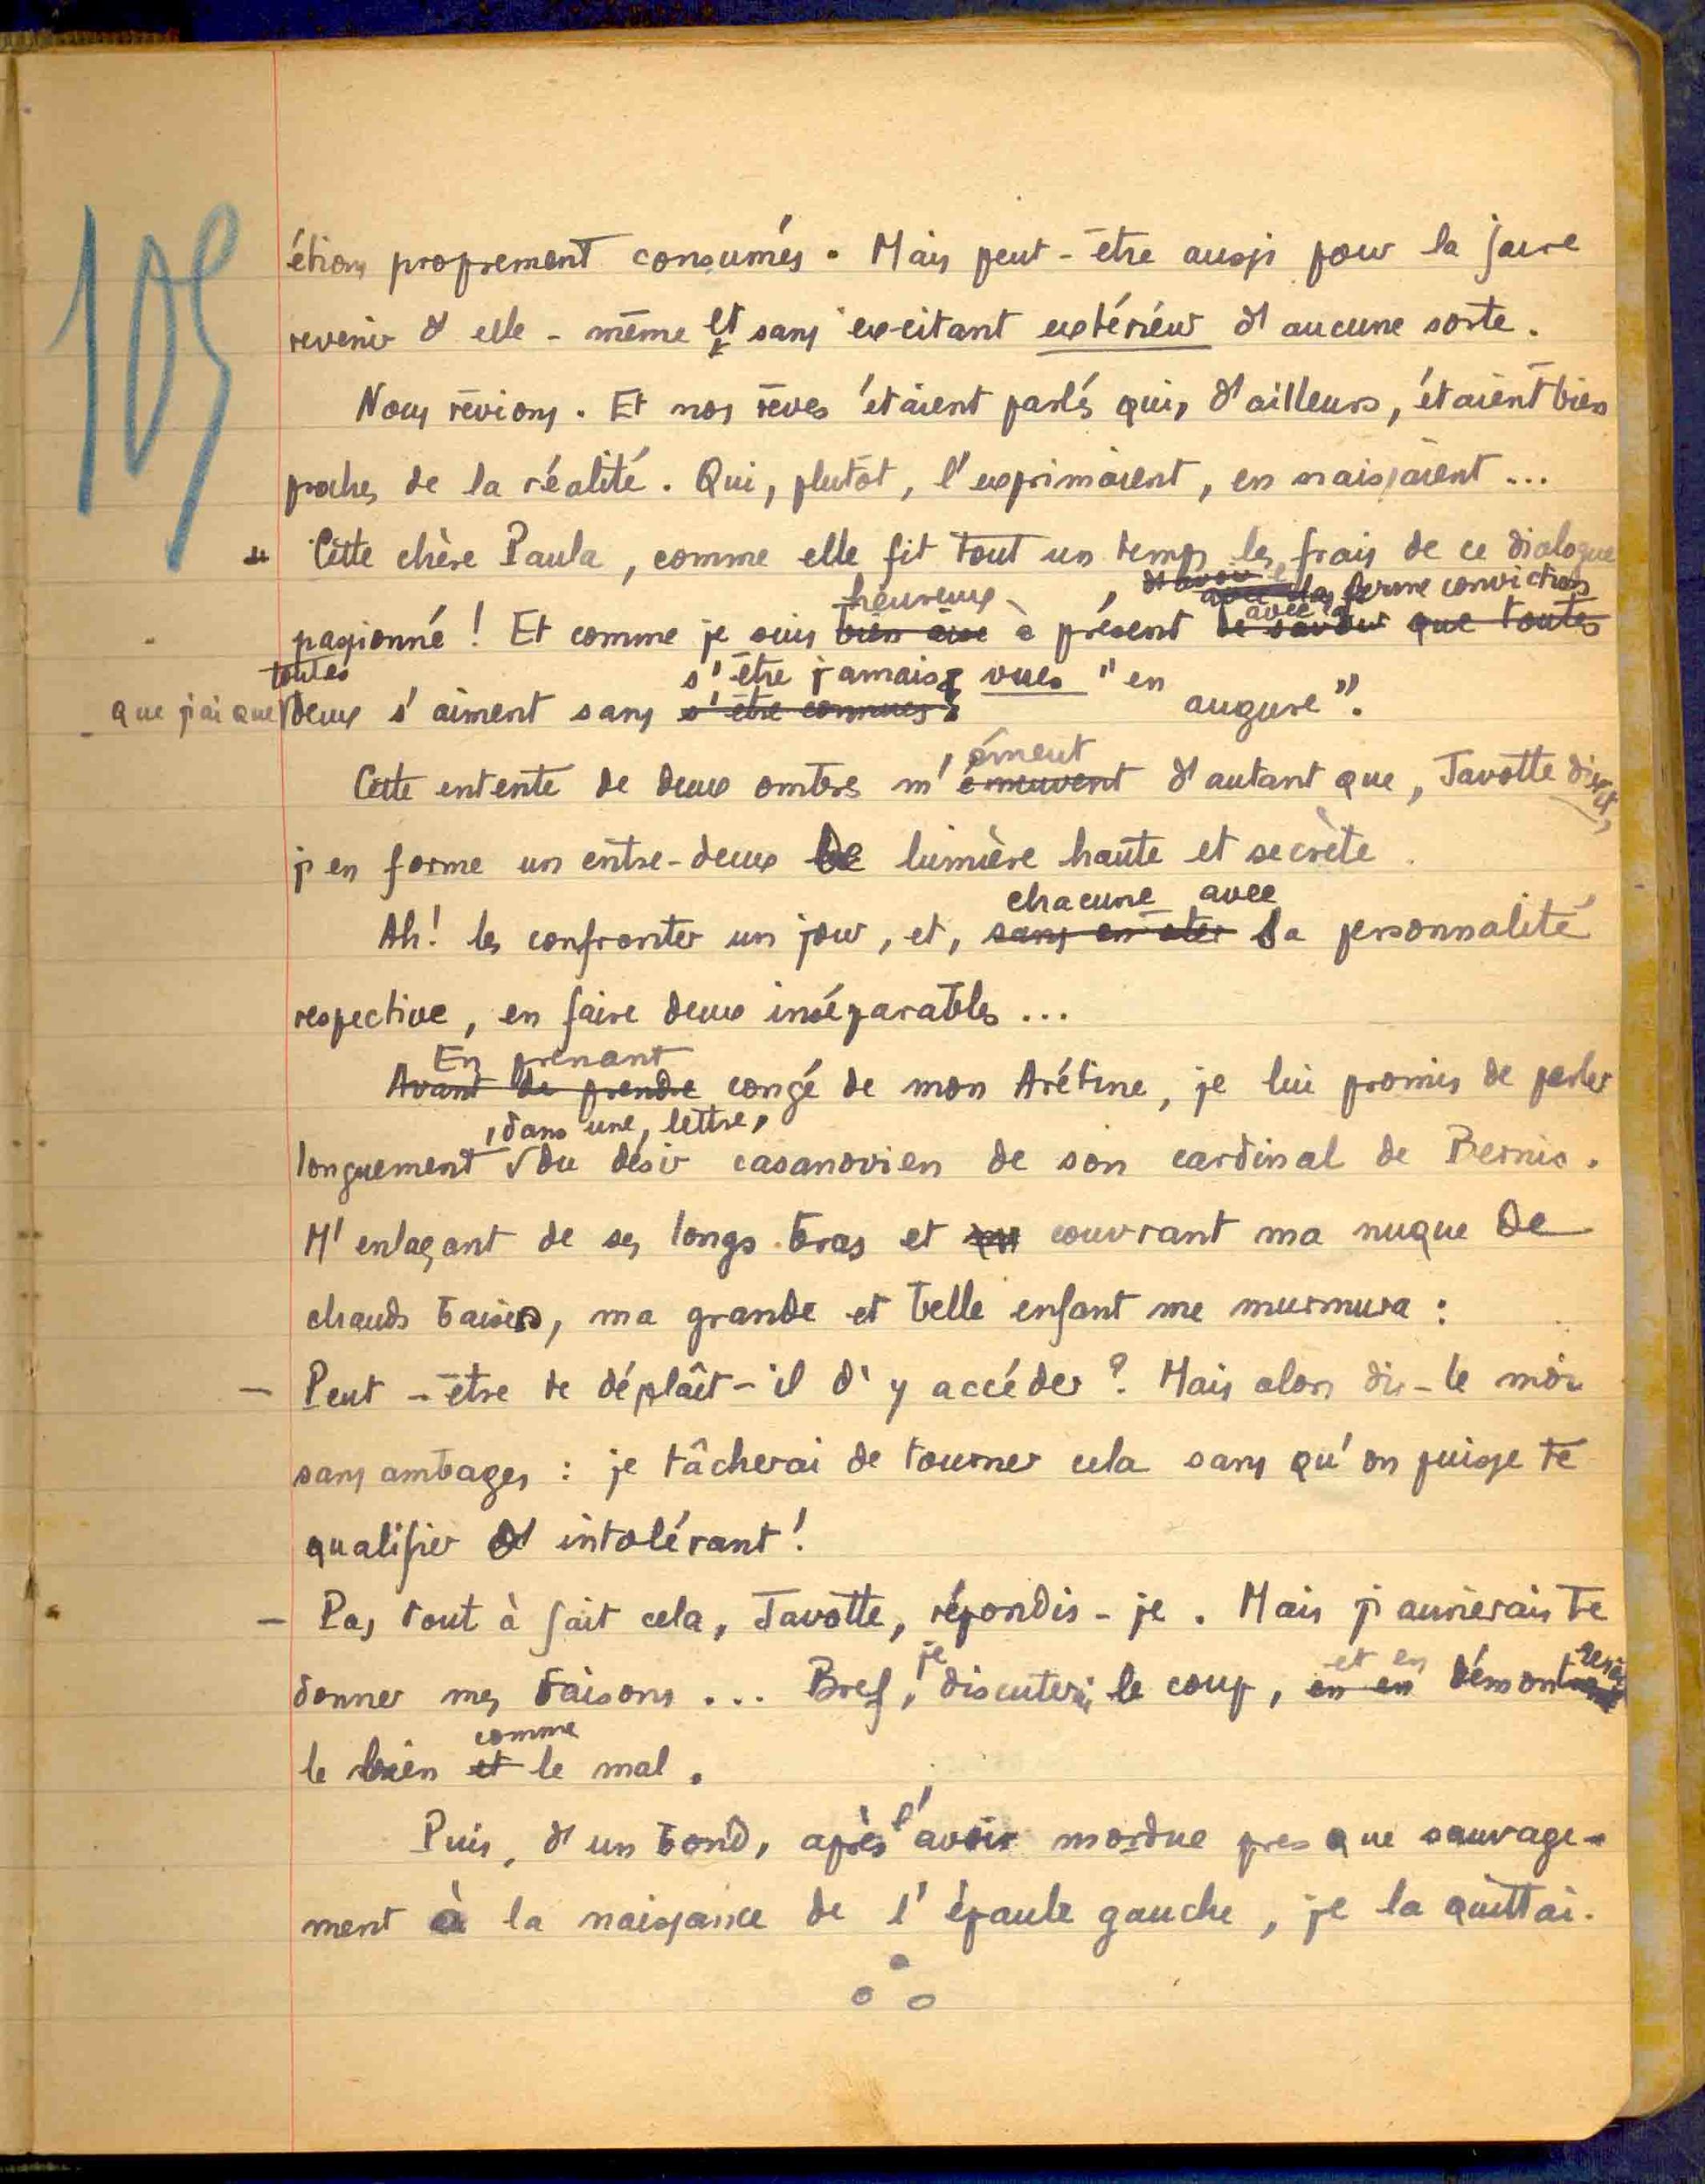 105
étions proprement consumés. Mais peut-être aussi pour la faire
revenir d'elle-même et sans excitant extérieur d'aucune sorte.
Nous rêvions. Et nos rêves étaient parlés qui, d'ailleurs, étaient bien
proches de la réalité. Qui, plutôt, l'exprimaient, en naissaient...
Cette chère Paula, comme elle fit tout un temps les frais de ce dialogue
heureux , d'avoir avec la ferme conviction
passionné ! Et comme je suis bien aise à présent de savoir que toutes
avec la
toutes s'être jamais vues "en
que j'ai que deux s'aiment sans s'être connues augure".
émeut
Cette entente de deux ombres m'émeuvent d'autant que, Javotte dixit,
j'en forme un entre-deux de lumière haute et secrète.
chacune avec
Ah! les confronter un jour, et, sans en ôter sa personnalité
respective, en faire deux inséparables...
En prenant
Avant de prendre congé de mon Arétine, je lui promis de parler
, dans une lettre,
longuement du désir casanovien de son cardinal de Bernis.
M'enlaçant de ses longs bras et couvrant ma nuque de
chauds baisers, ma grande et belle enfant me murmura :
— Peut-être te déplaît-il d'y accéder ? Mais alors dis-le moi
sans ambages : je tâcherai de tourner cela sans qu'on puisse te
qualifier d'intolérant !
— Pas tout à fait cela, Javotte, répondis-je. Mais j'aimerais te
je et en
donner mes raisons... Bref, discuterai le coup, en en démontrerai
comme
le bien et le mal.
l'
Puis, d'un bond, après avoir mordue presque sauvage-
ment à la naissance de l'épaule gauche, je la quittai.